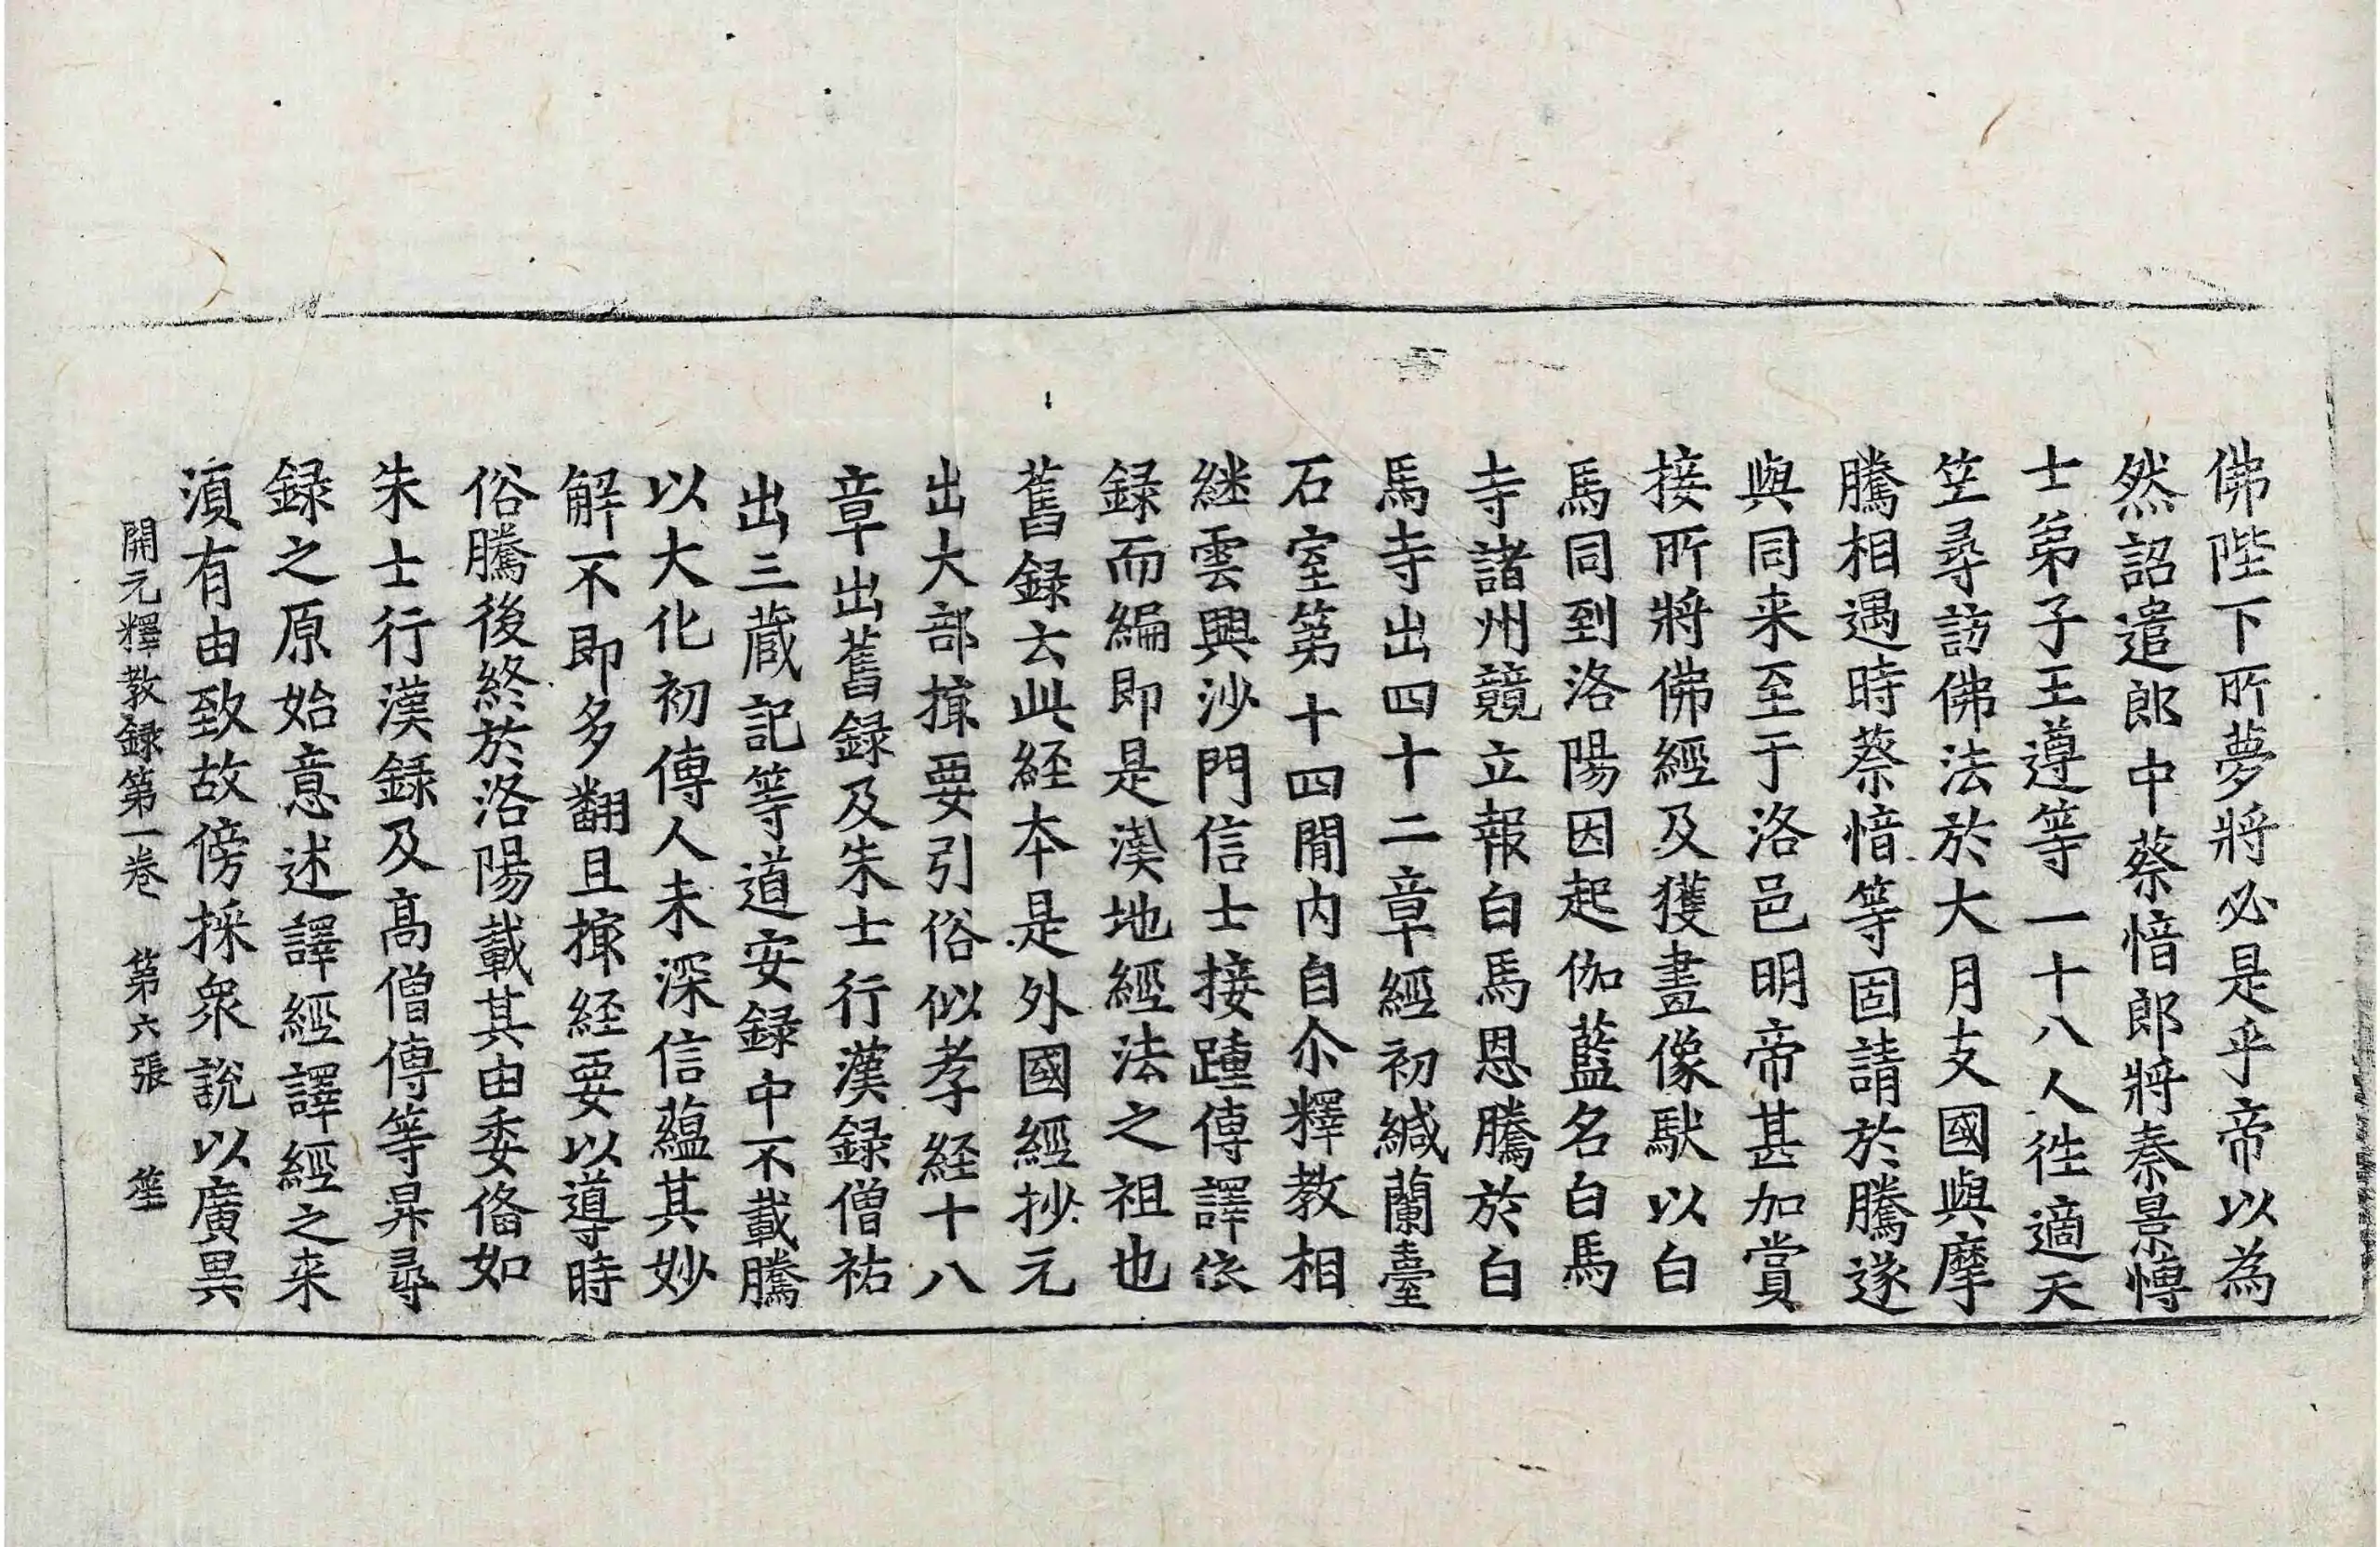 佛陛下所夢將必是乎帝以為
然詔遣郎中蔡愔郎將秦景愽
士弟子王遵等一十八人徃適天
笁尋訪佛法於大月支國與摩
騰相遇時蔡愔等固請於騰遂
與同来至于洛邑明帝甚加賞
接所將佛經及獲畫像馱以白
馬同到洛陽因起伽藍名白馬
寺諸州競立報白馬恩騰於白
馬寺出四十二章經初緘蘭臺
石室第十四閒内自尒釋教相
継雲興沙門信士接踵傳譯依
録而編即是漢地經法之祖也
舊録云此経本是外國經抄元
出大部撮要引俗似孝経十八
章出舊録及朱士行漢録僧祐
出三蔵記等道安録中不載騰
以大化初傳人未深信蘊其妙
解不即多翻且撮経要以導時
俗騰後終於洛陽載其由委俻如
朱士行漢録及髙僧傳等昇尋
録之原始意述譯經譯經之来
湏有由致故傍採衆説以廣異
開元釋教録第一卷 第六張 笙